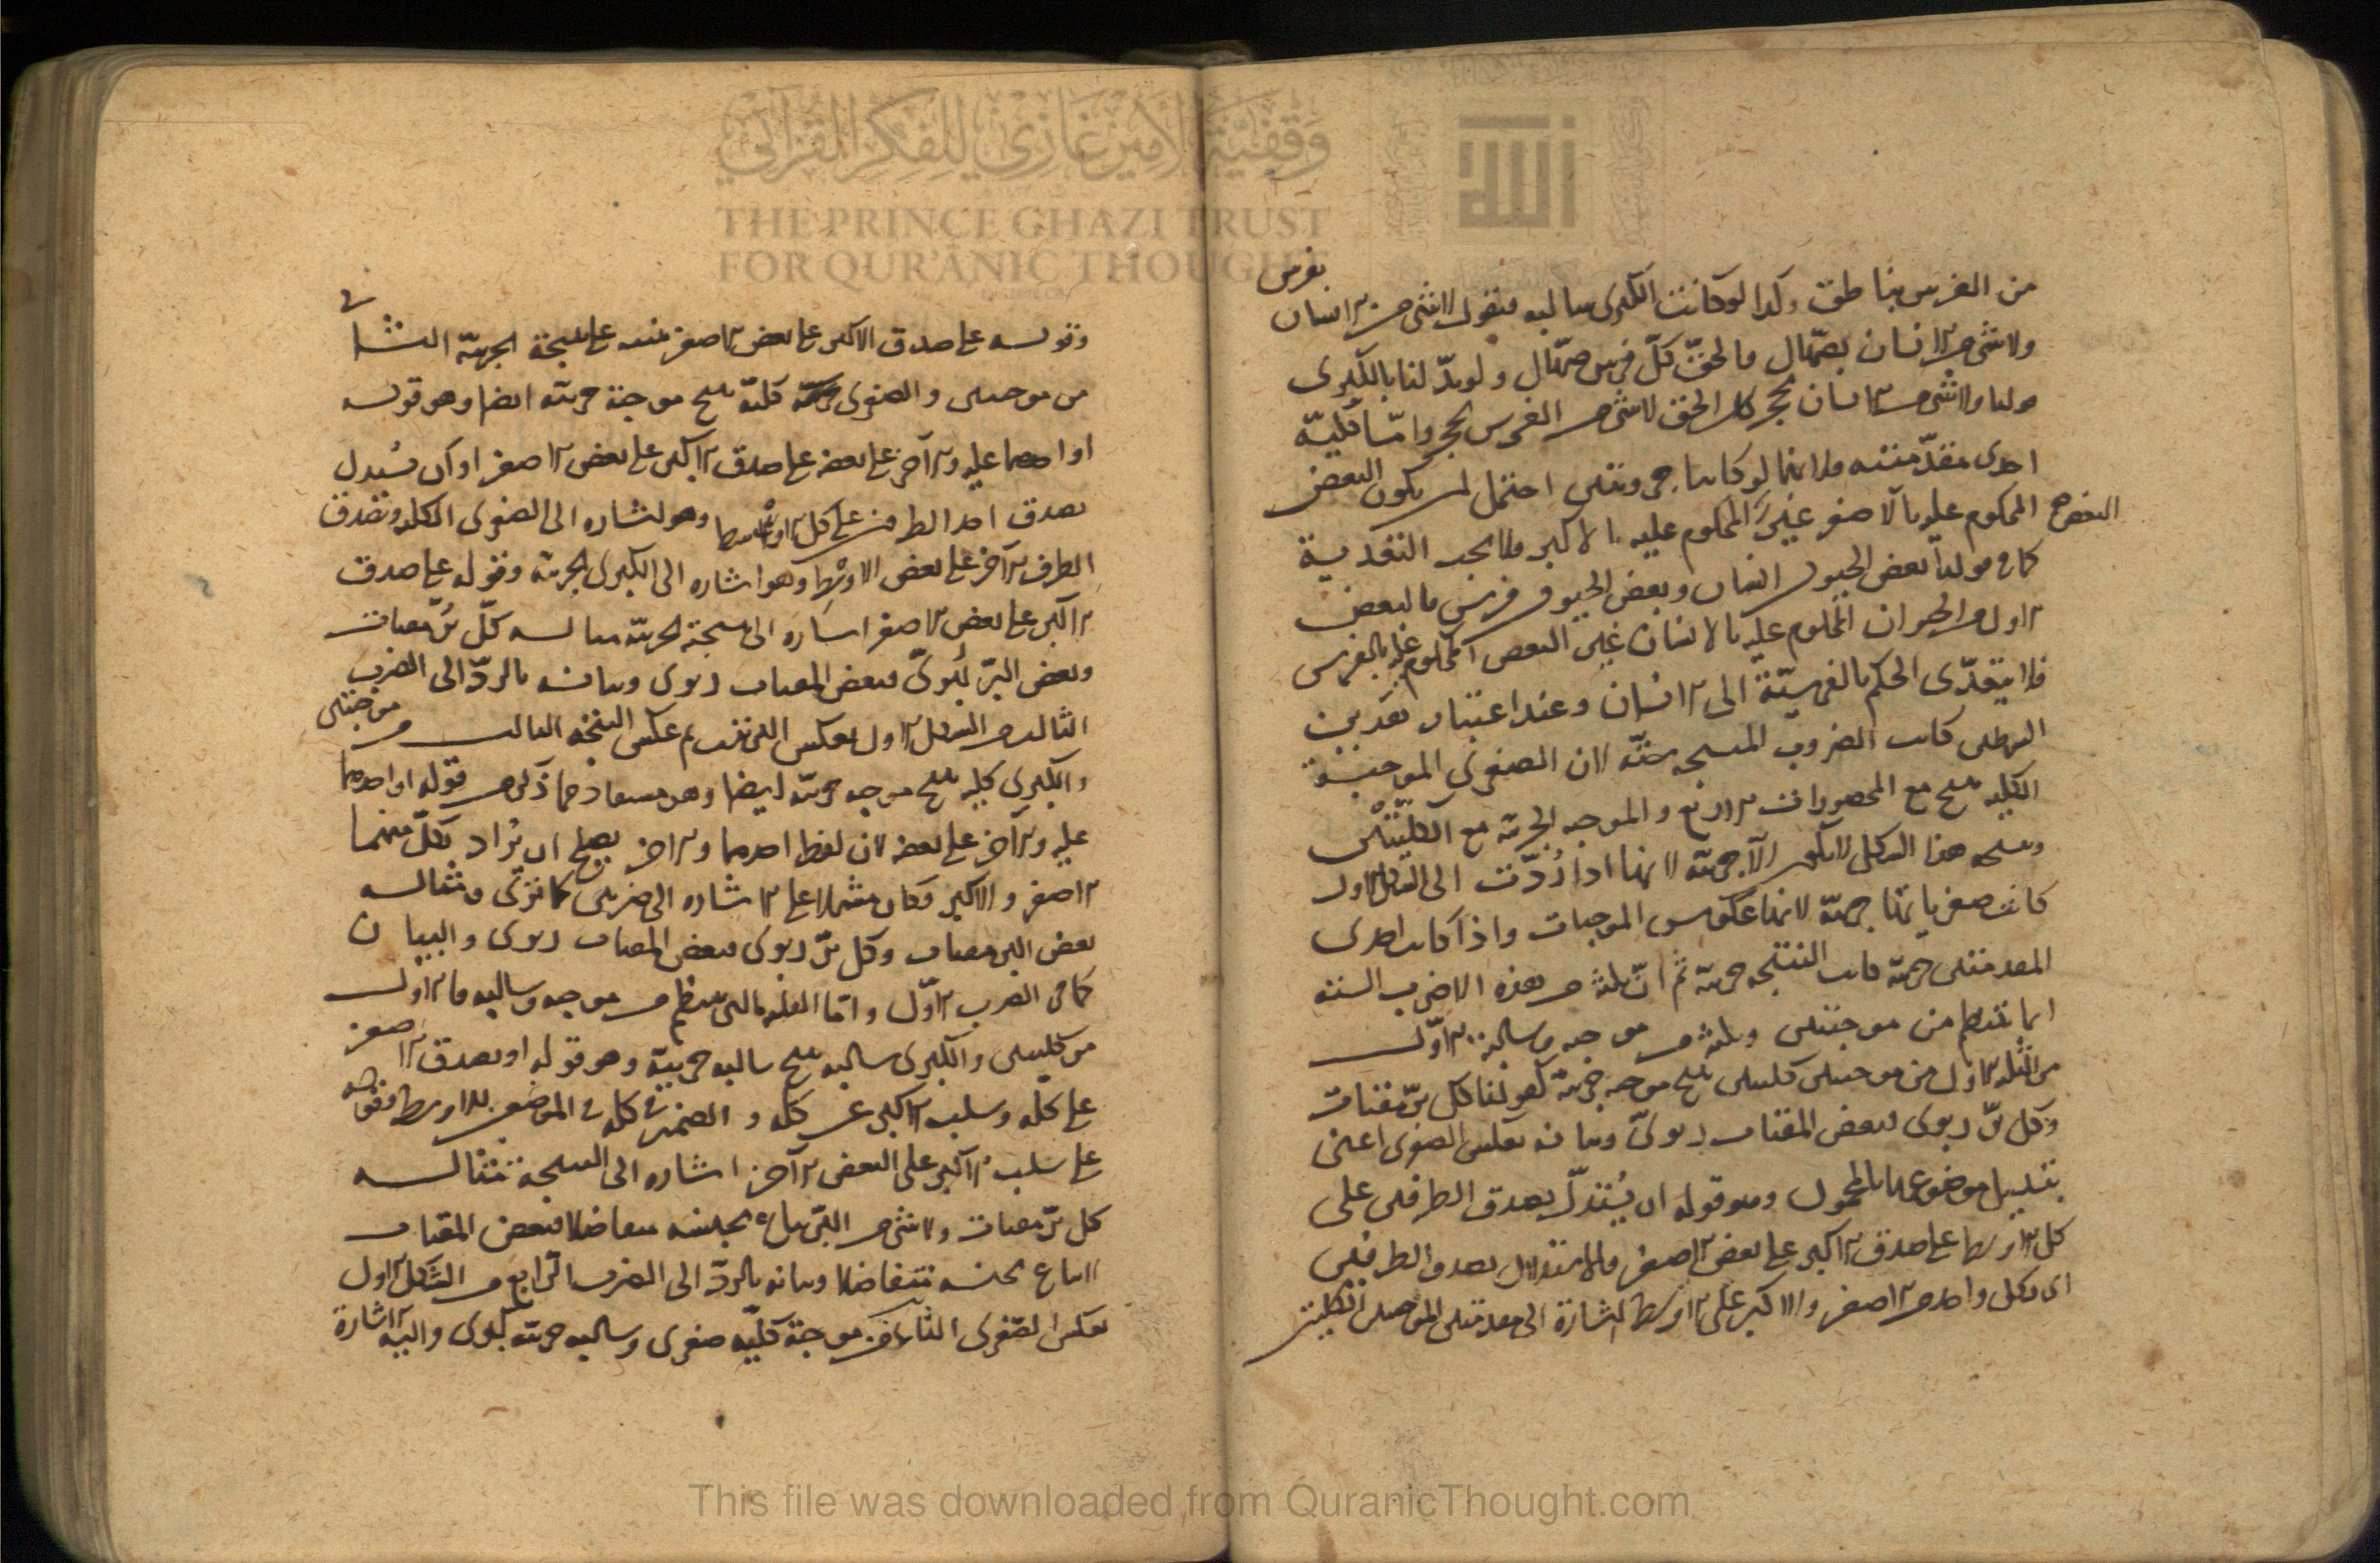 وقفية الأمير غازي للفكر القرآني
THE PRINCE GHAZI TRUST
FOR QUR'ANIC THOUGHT
الله
من الفرس بناطق وكذا لو كانت الكبرى سالبة فنقول لا شئ من الانسان بفرس
ولا شئ من الانسان بصهّال والحق كلّ فرس صهّال ولو بدّلنا بالكبرى
قولنا ولا شئ من الانسان بحجر كان الحق لا شئ من الفرس بحجر وامّا كليّة
احدى مقدّمتيه فلانهما لو كانتا جزويتين احتمل ان يكون البعض
المحكوم عليه بالاصغر غير المحكوم عليه بالاكبر فلا يجب التعدية
كما في قولنا بعض الحيوان انسان وبعض الحيوان فرس فالبعض
الاول من الحيوان المحكوم عليه بالانسان غير البعض المحكوم عليه بالفرس
فلا يتعدّى الحكم بالفرسيّة الى الانسان وعند اعتبار هذين
الشرطين كانت الضروب المنتجة ستّة لان الصغرى الموجبة
الكلية تنتج مع المحصورات الاربع والموجبة الجزية مع الكليّتين
ونتيجة هذا الشكل لا يكون الاّ جزيّة لانها اذا رُدّت الى الشكل الاول
كانت صغرياتها جزيّة لانها عكوس الموجبات واذا كانت احدى
المقدمتين جزيّة كانت النتيجة جزيّة ثم انّ ثلثة من هذه الاضرب الستة
انما تنتظم من موجبتين وثلثة من موجبة وسالبة الاوّل
من الثلثة الاول من موجبتين كليتين ينتج موجبة جزية كقولنا كل برّ مقتات
وكل برّ ربوى فبعض المقتات ربوىّ وبيانه بعكس الصغرى اعنى
تبديل موضوعها بالمحمول وهو قوله ان يُستدلّ بصدق الطرفين على
كل الاوسط على صدق الاكبر على بعض الاصغر فالاستدلال بصدق الطرفين
اى كل واحد من الاصغر والاكبر على الاوسط اشارة الى مقدمتين الموجبتين الكليتين
وقوله على صدق الاكبر على بعض الاصغر تنبيه على نتيجة الجزيّة الثانى
من موجبتين والصغرى كليّة ينتج موجبة جزيّة ايضا وهو قوله
او احدهما عليه والآخر على بعضه على صدق الاكبر على بعض الاصغر او ان يستدل
بصدق احد الطرفين على كل الاوسط وهو اشاره الى الصغرى الكلية وبصدق
الطرف الآخر على بعض الاوسط وهو اشاره الى الكبرى الجزية وقوله على صدق
الاكبر على بعض الاصغر اشاره الى نتيجة الجزيّة مثاله كلّ برّ مقتات
وبعض البرّ ربوىّ فبعض المقتات ربوى وبيانه بالردّ الى الضرب
الثالث من الشكل الاول بعكس الترتيب ثم عكس النتيجة الثالث من موجبتين
والكبرى كلية ينتج موجبة جزيّة ايضا وهو مستفاد مما ذكر من قوله او احدهما
عليه والآخر على بعضه لان لفظ احدهما والاخر يصلح ان يُراد بكلّ منهما
الاصغر والاكبر فكان مشتملا على الاشاره الى ضربين كما ترى ومثاله
بعض البر مقتات وكل برّ ربوى فبعض المقتات ربوى والبيان
كما فى الضرب الاوّل وامّا الثلثة التى تنتظم من موجبة وسالبة فالاول
من كليتين والكبرى سالبه ينتج سالبه جزييّة وهو قوله او بصدق الاصغر
على كله وسلب الاكبر عن كله والضمير فى كله فى الموضعين للاوسط وقوله
على سلب الاكبر على البعض الآخر اشاره الى النتيجة مثاله
كل برّ مقتات ولا شئ من البرّ يباع بجنسه متفاضلا فبعض المقتات
لا يباع بجنسه متفاضلا وبيانه بالردّ الى الضرب الرابع من الشكل الاول
بعكس الصّغرى الثانى من موجبة كليّة صغرى وسالبه جزيّة كبرى واليه الاشارة
This file was downloaded from QuranicThought.com